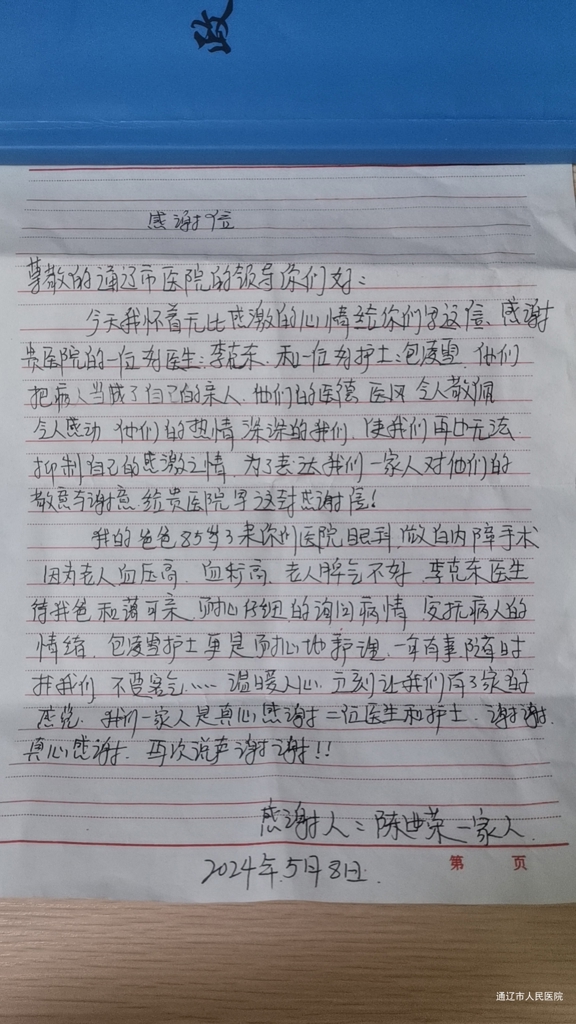 政
感谢信
尊敬的通辽市医院的领导你们好:
今天我怀着无比感激的心情给你们写这信、感谢
贵医院的一位好医生:李克东、和一位好护士:包凌雪、他们
把病人当成了自己的亲人、他们的医德、医风、令人敬佩
令人感动、他们的热情深深的我们、使我们再也无法
抑制自己的感激之情、为了表达我们一家人对他们的
敬意与谢意、给贵医院写这封感谢信!
我的爸爸85岁了来你们医院眼科、做白内障手术
因为老人血压高、血糖高、老人脾气不好、李克东医生
待我爸和蔼可亲、耐心仔细的询问病情、安抚病人的
情绪、包凌雪护士更是耐心地护理、一年有事随时
找我们、不要客气……温暖人心、立刻让我们有了家的
感觉、我们一家人是真心感谢二位医生和护士、谢谢、
真心感谢、再次说声谢谢!!
感谢人:陈世荣一家人
2024年5月8日.
第 页
通辽市人民医院